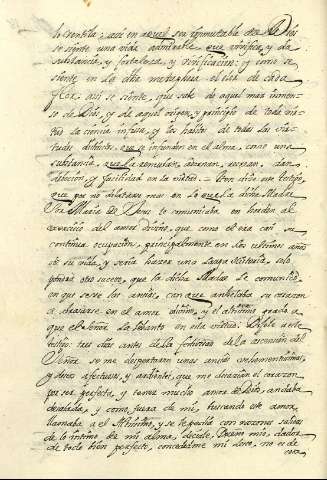 lo ventila: assi en aquel ser inmutable de Dios
se siente una vida admirable que vivifica, y da
substancia, y fortaleza, y vivificacion: y como se
siente en la dha metaphora el olor de cada
flor: assi se siente, que sale de aquel mar inmen-
so de Dios, y de aquel origen, y principio de toda vir-
tud la ciencia infusa, y los habitos de todas las vir-
tudes distinctos, que se infunden en el alma, como una
substancia, que la renuevan, recrean, dan
y facilidad en la virtud. Por otro este testigo,
que por no dilatarse mas en lo que la dicha Madre
Sor Maria de Jesus le comunicaba en horden al
exercicio del amor Divino, que como el era casi su
continua ocupacion, principalmente en los ultimos años
de su vida, y seria hazer una larga Historia, solo
pondrá otro sucesso, que la dicha Madre le comunicó
en que se ve las ansias, con que anhelaba su corazon
a abrasarse en el amor divino, y el altissimo grado a
que el Señor la lebantó en esta virtud: Dixole a este
testigo: tres dias antes de la festividad de la ascension del
Señor se me despertaron unas ansias vehementissimas,
y afectuosas, y ardientes, que me deshazian el corazon
por ser perfecta, y tener mucho amor de Dios, andaba
desalada, y como fuera de mi, buscando este amor,
llamaba a el Altissimo, y se lo pedia con razones salidas
de lo intimo de mi alma, decale, Dueño mio, dador
de todo bien perfecto, concededme mi deseo, no es de
cosa